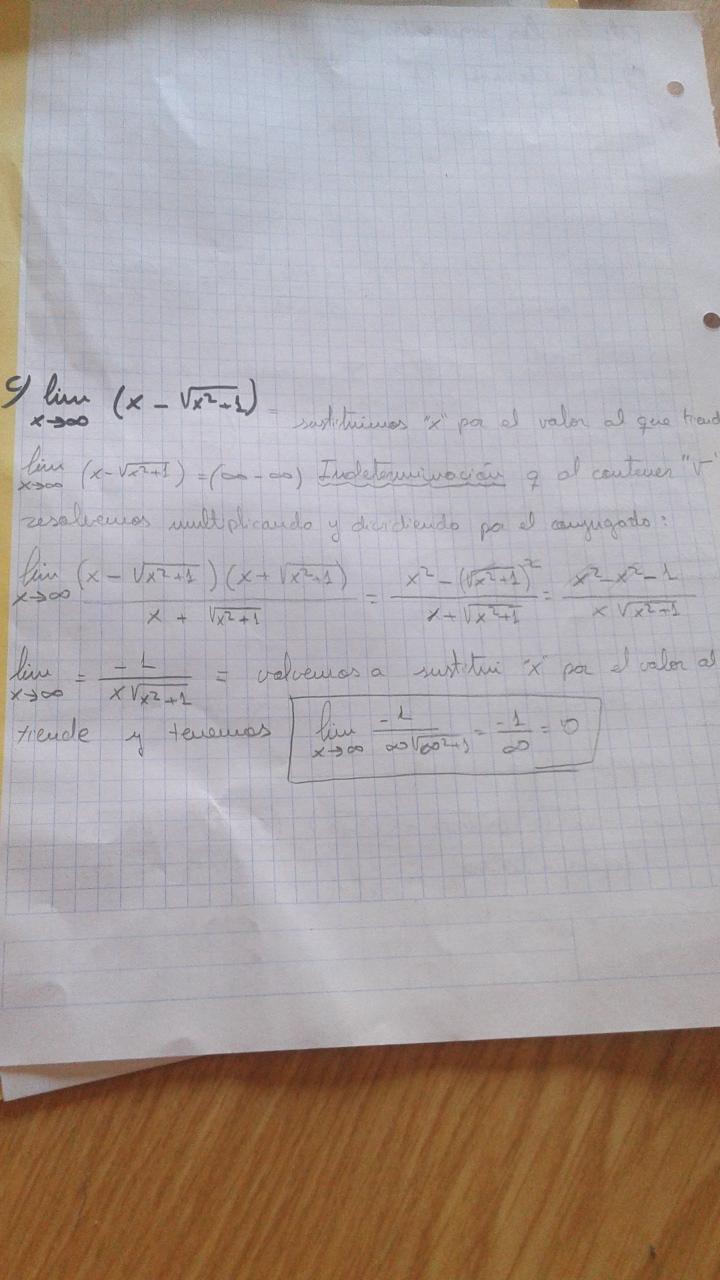 c) lim x→∞ (x - √x²+1) = sustituimos "x" por el valor al que tiend
lim x→∞ (x-√x²+1) = (∞-∞) Indeterminación q al contener "√"
resolvemos multiplicando y dividiendo por el conjugado:
lim x→∞ (x - √x²+1)(x + √x²+1) / x + √x²+1 = x² - (√x²+1)² / x+√x²+1 = x²-x²-1 / x √x²+1
lim x→∞ = -1 / x√x²+1 = volvemos a sustitui "x" por el valor al
tiende y tenemos lim x→∞ -1 / ∞√∞²+1 = -1 / ∞ = 0